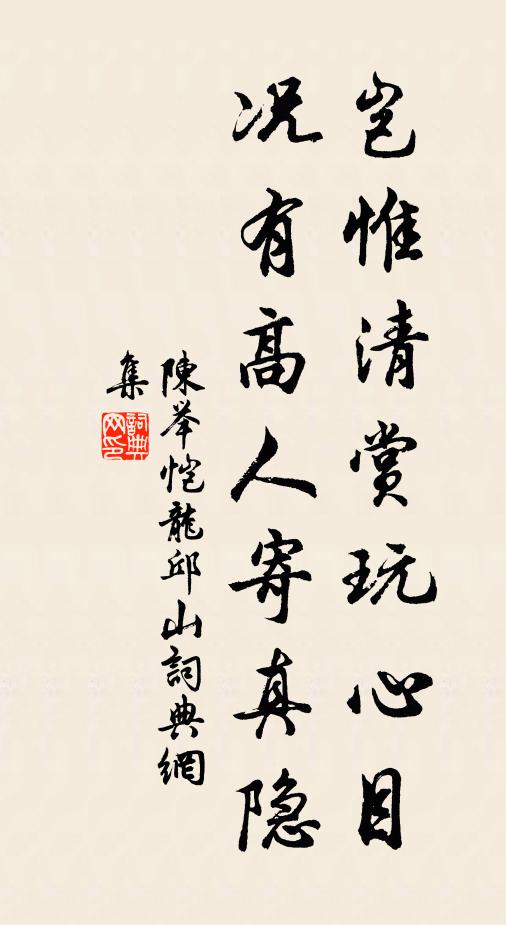 岂惟清赏玩心目
况有高人寄真隐
陳举恺龍邱山詞典網
集
詞典
网印